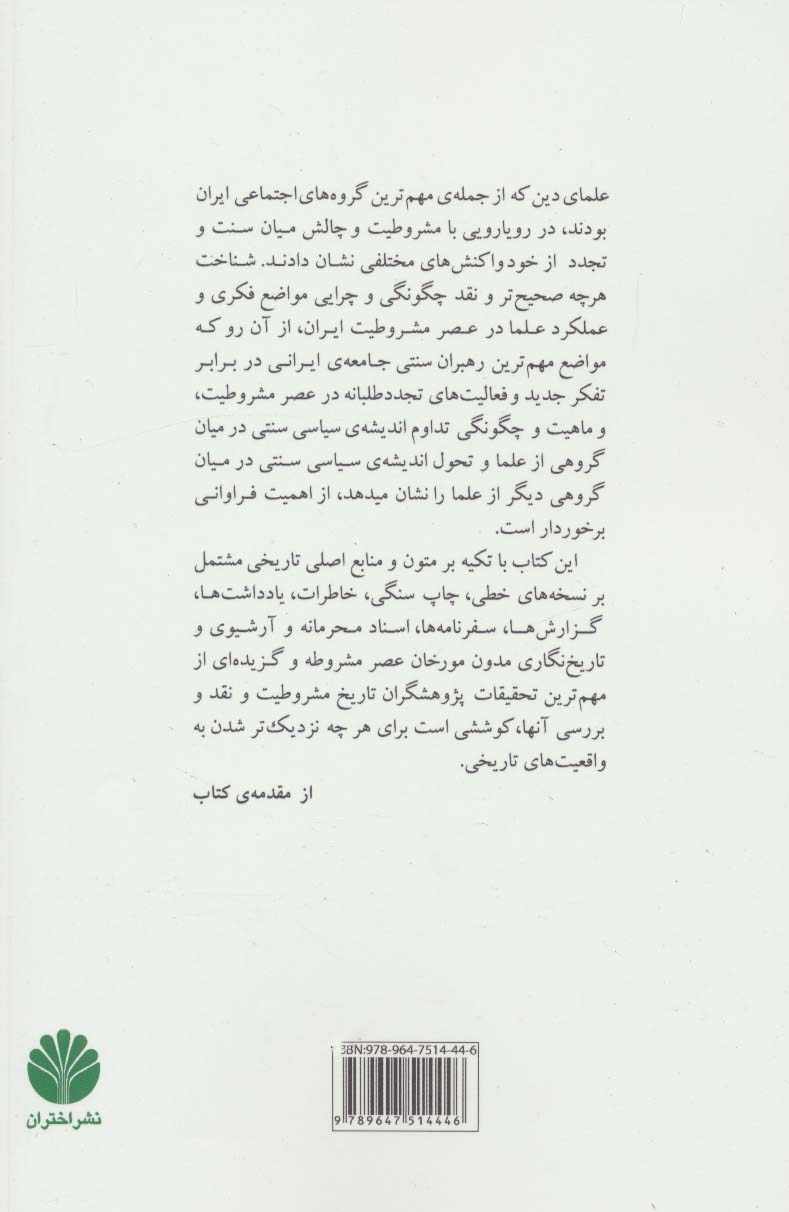 علمای دین که از جمله‌ی مهم‌ترین گروه‌های اجتماعی ایران
بودند، در رویارویی با مشروطیت و چالش میان سنت و
تجدد از خود واکنش‌های مختلفی نشان دادند. شناخت
هرچه صحیح‌تر و نقد چگونگی و چرایی مواضع فکری و
عملکرد علما در عصر مشروطیت ایران، از آن رو که
مواضع مهم‌ترین رهبران سنتی جامعه‌ی ایرانی در برابر
تفکر جدید و فعالیت‌های تجددطلبانه در عصر مشروطیت،
و ماهیت و چگونگی تداوم اندیشه‌ی سیاسی سنتی در میان
گروهی از علما و تحول اندیشه‌ی سیاسی سنتی در میان
گروهی دیگر از علما را نشان میدهد، از اهمیت فراوانی
برخوردار است.
این کتاب با تکیه بر متون و منابع اصلی تاریخی مشتمل
بر نسخه‌های خطی، چاپ سنگی، خاطرات، یادداشت‌ها،
گزارش‌ها، سفرنامه‌ها، اسناد محرمانه و آرشیوی و
تاریخ‌نگاری مدون مورخان عصر مشروطه و گزیده‌ای از
مهم‌ترین تحقیقات پژوهشگران تاریخ مشروطیت و نقد و
بررسی آنها، کوششی است برای هر چه نزدیک‌تر شدن به
واقعیت‌های تاریخی.
از مقدمه‌ی کتاب
ISBN:978-964-7514-44-6
9 789647 514446
نشر اختران